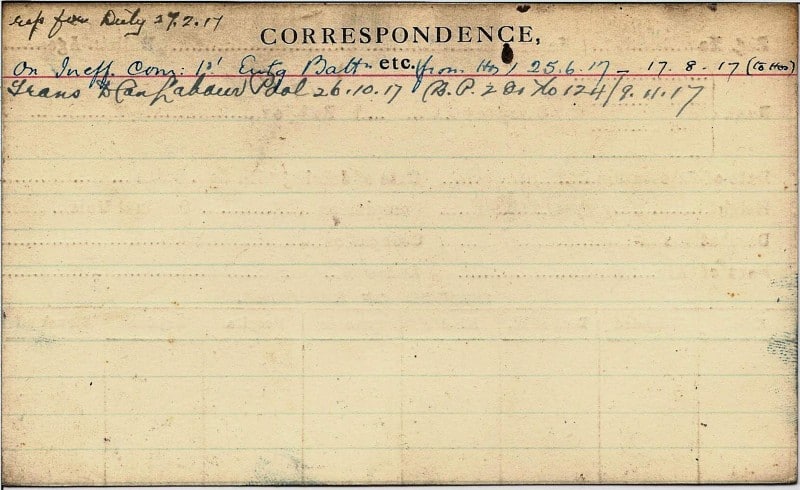 rep for Duty 27.2.17
CORRESPONDENCE,
etc.
On Ineff. Com: 1st Entg Battn from Hos, 25.6.17 – 17.8.17 (to Hos)
Trans to Can Labour Pool 26.10.17 (B.P. 2 Do No 124/9.11.17